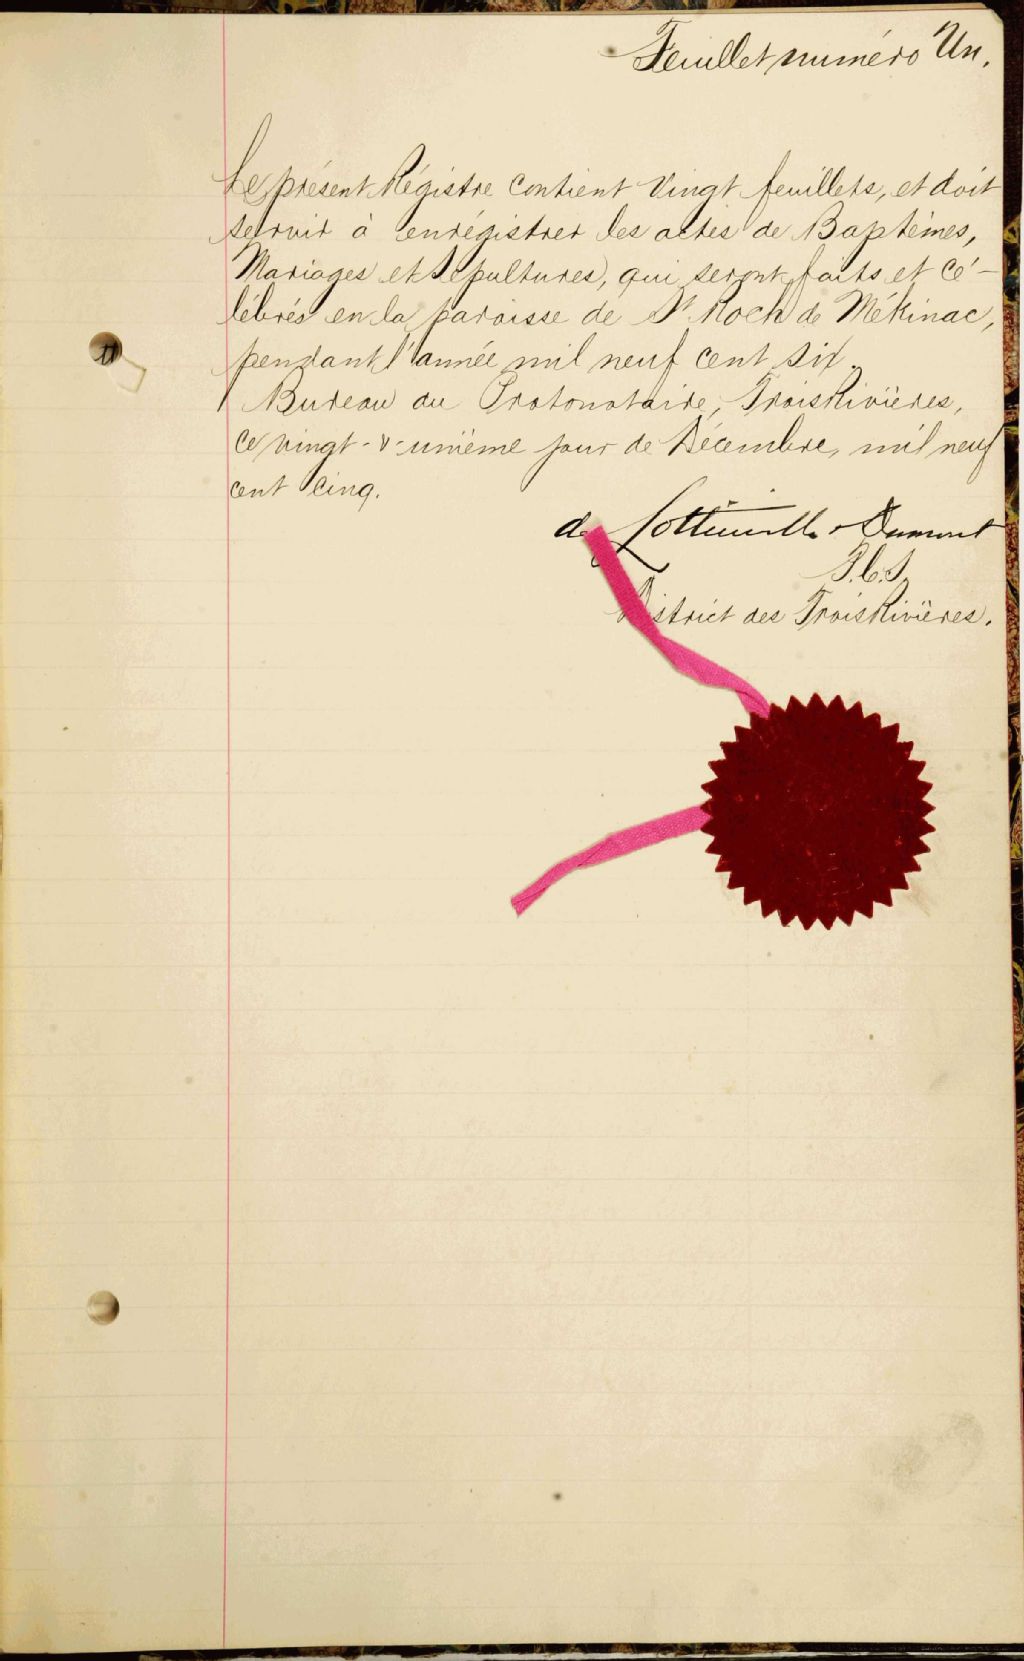 Feuillet numéro Un.
Le présent Régistre contient vingt feuillets, et doit
servir à enrégistrer les actes de Baptêmes,
Mariages et Sépultures, qui seront faits et cé-
lébrés en la paroisse de St Roch de Mékinac,
pendant l'année mil neuf cent six.
Bureau du Protonotaire, Trois Rivières,
ce vingt-&-unième jour de Décembre, mil neuf
cent cinq.
de Lottinville & Dumont
P.C.S.
District des Trois Rivières.